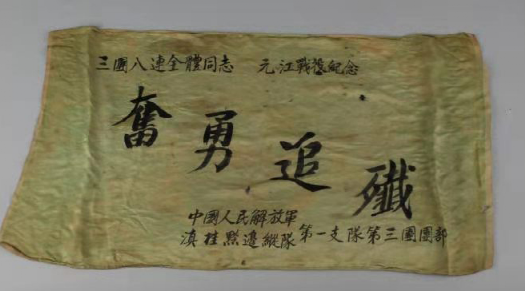 三團八連全體同志 元江戰役紀念
奮勇追殲
中國人民解放軍
滇桂黔邊縱隊第一支隊第三團團部